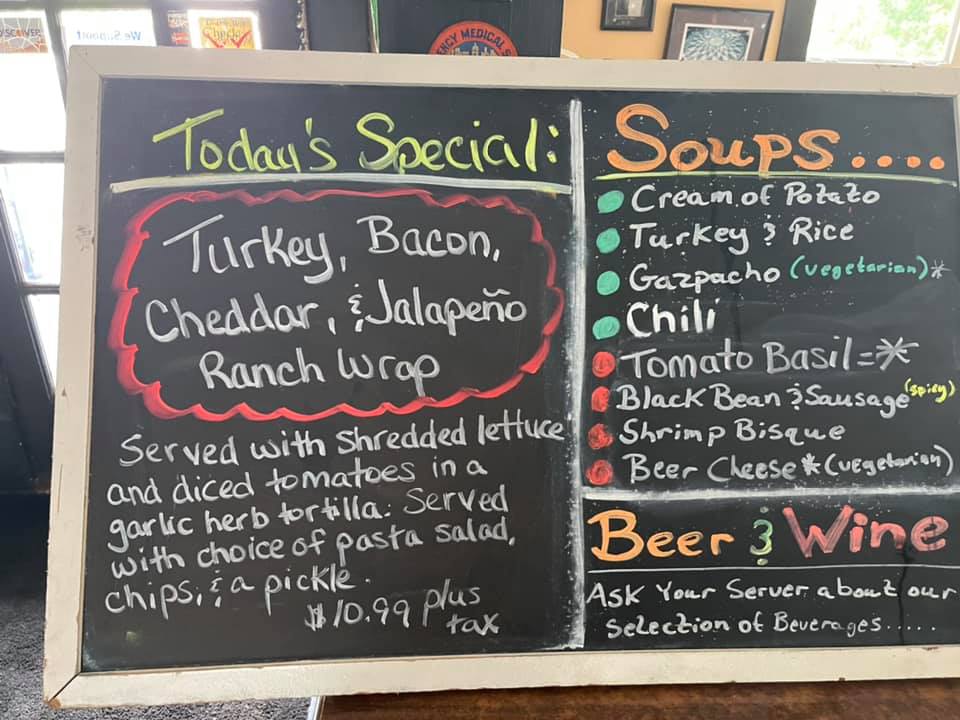 DISCOVER
We Support
NCY MEDICAL S
Today's Special:
Turkey, Bacon,
Cheddar, & Jalapeño
Ranch Wrap
Served with shredded lettuce
and diced tomatoes in a
garlic herb tortilla. Served
with choice of pasta salad,
chips, & a pickle.
$10.99 plus
tax
Soups....
Cream of Potato
Turkey & Rice
Gazpacho (vegetarian)*
Chili
Tomato Basil=*
Black Bean & Sausage (spicy)
Shrimp Bisque
Beer Cheese *(vegetarian)
Beer & Wine
Ask Your Server about our
Selection of Beverages.....